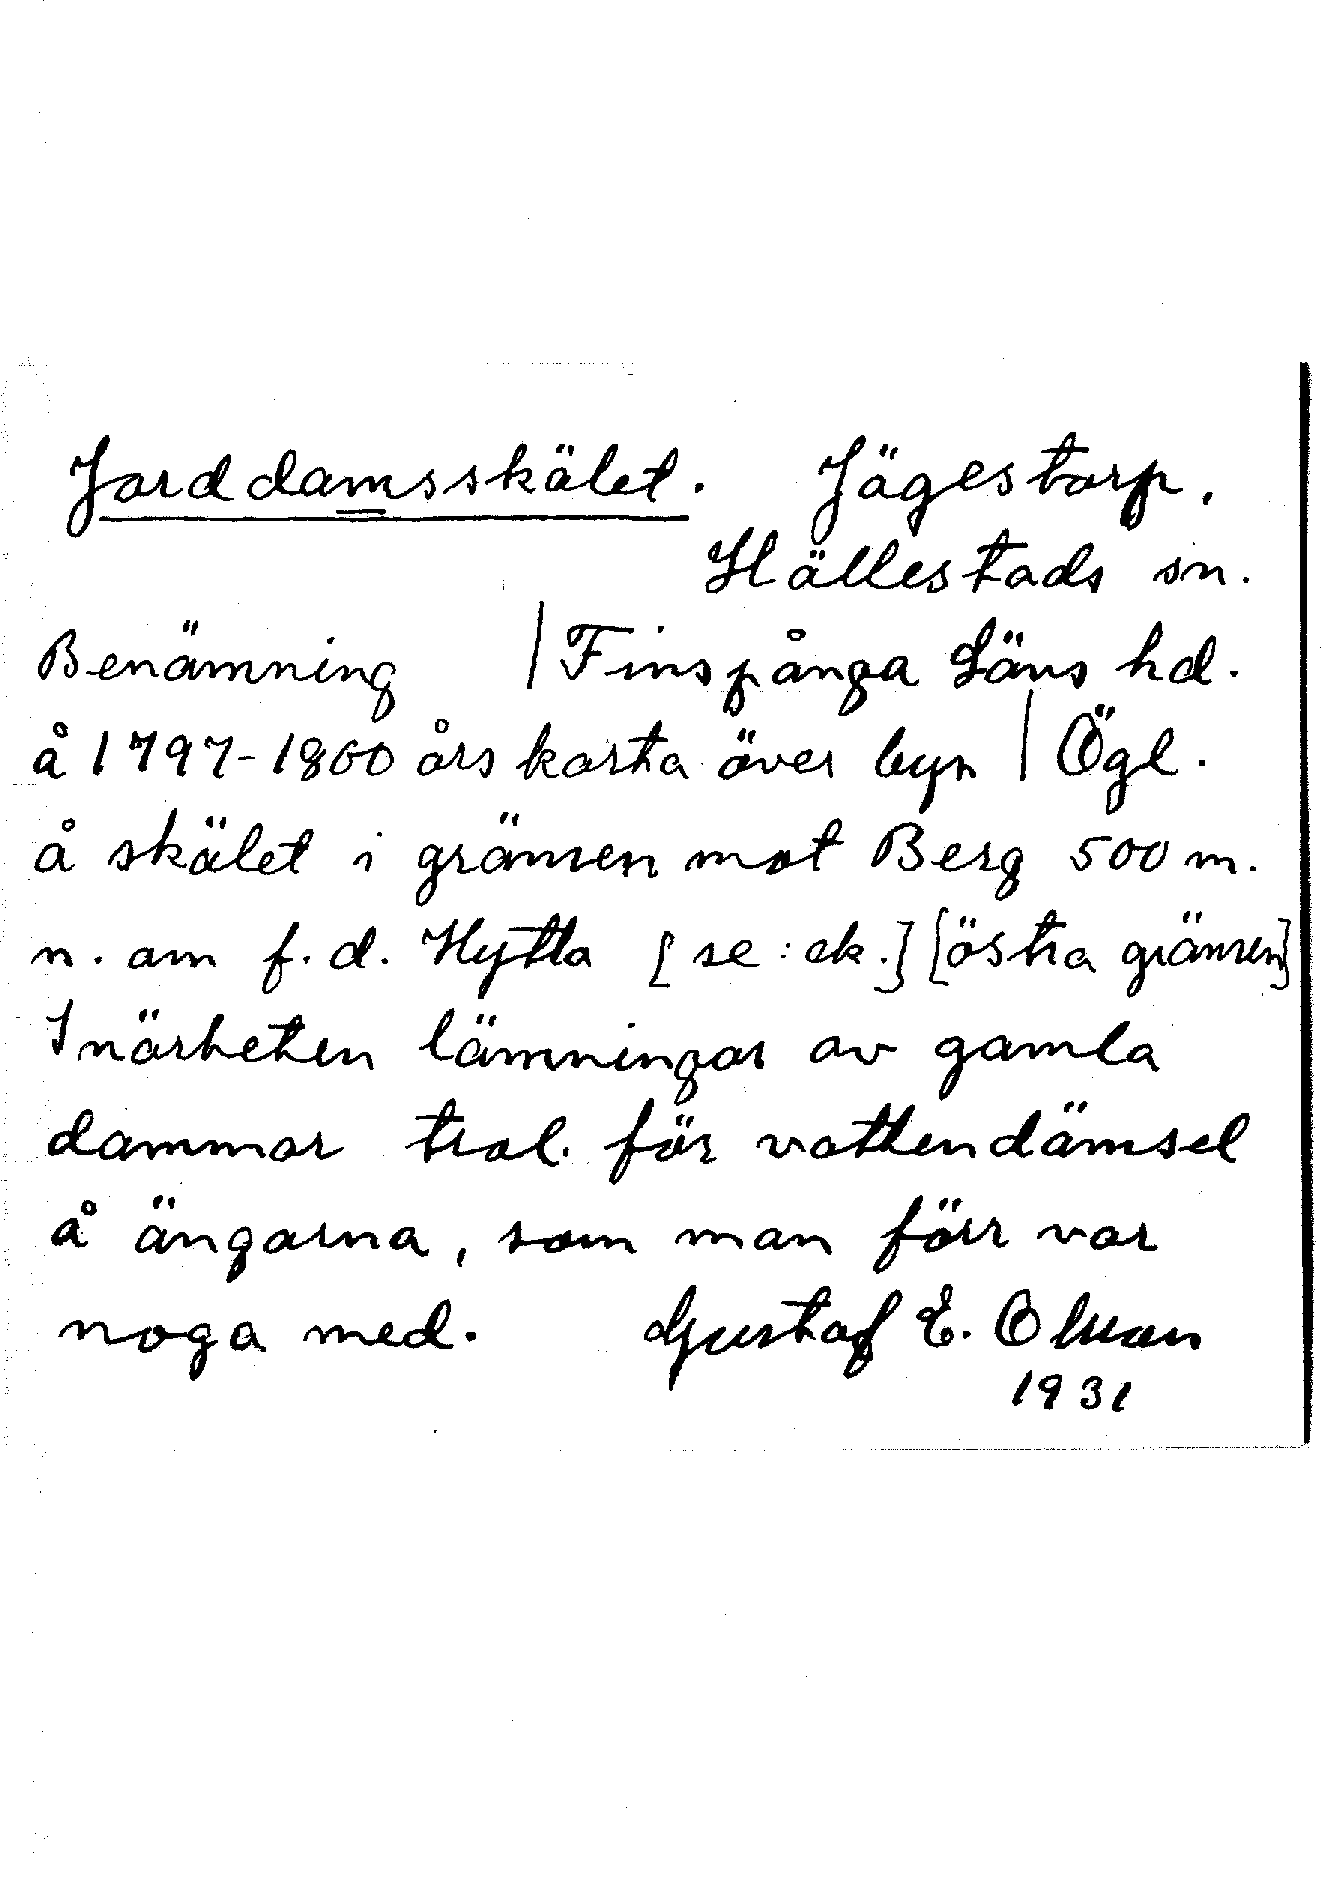 Jorddamsskälet. Jägestorp,
Hällestads sn.
Benämning | Finspånga Läns hd.
å 1797-1800 års karta över byn | Ögl.
å skälet i gränsen mot Berg 500 m.
n. om f.d. Hytta [se: ek.] [östra gränsen]
I närheten lämningar av gamla
dammar trol. för vattendämsel
å ängarna, som man förr var
noga med. Gustaf E. Olsson
1931